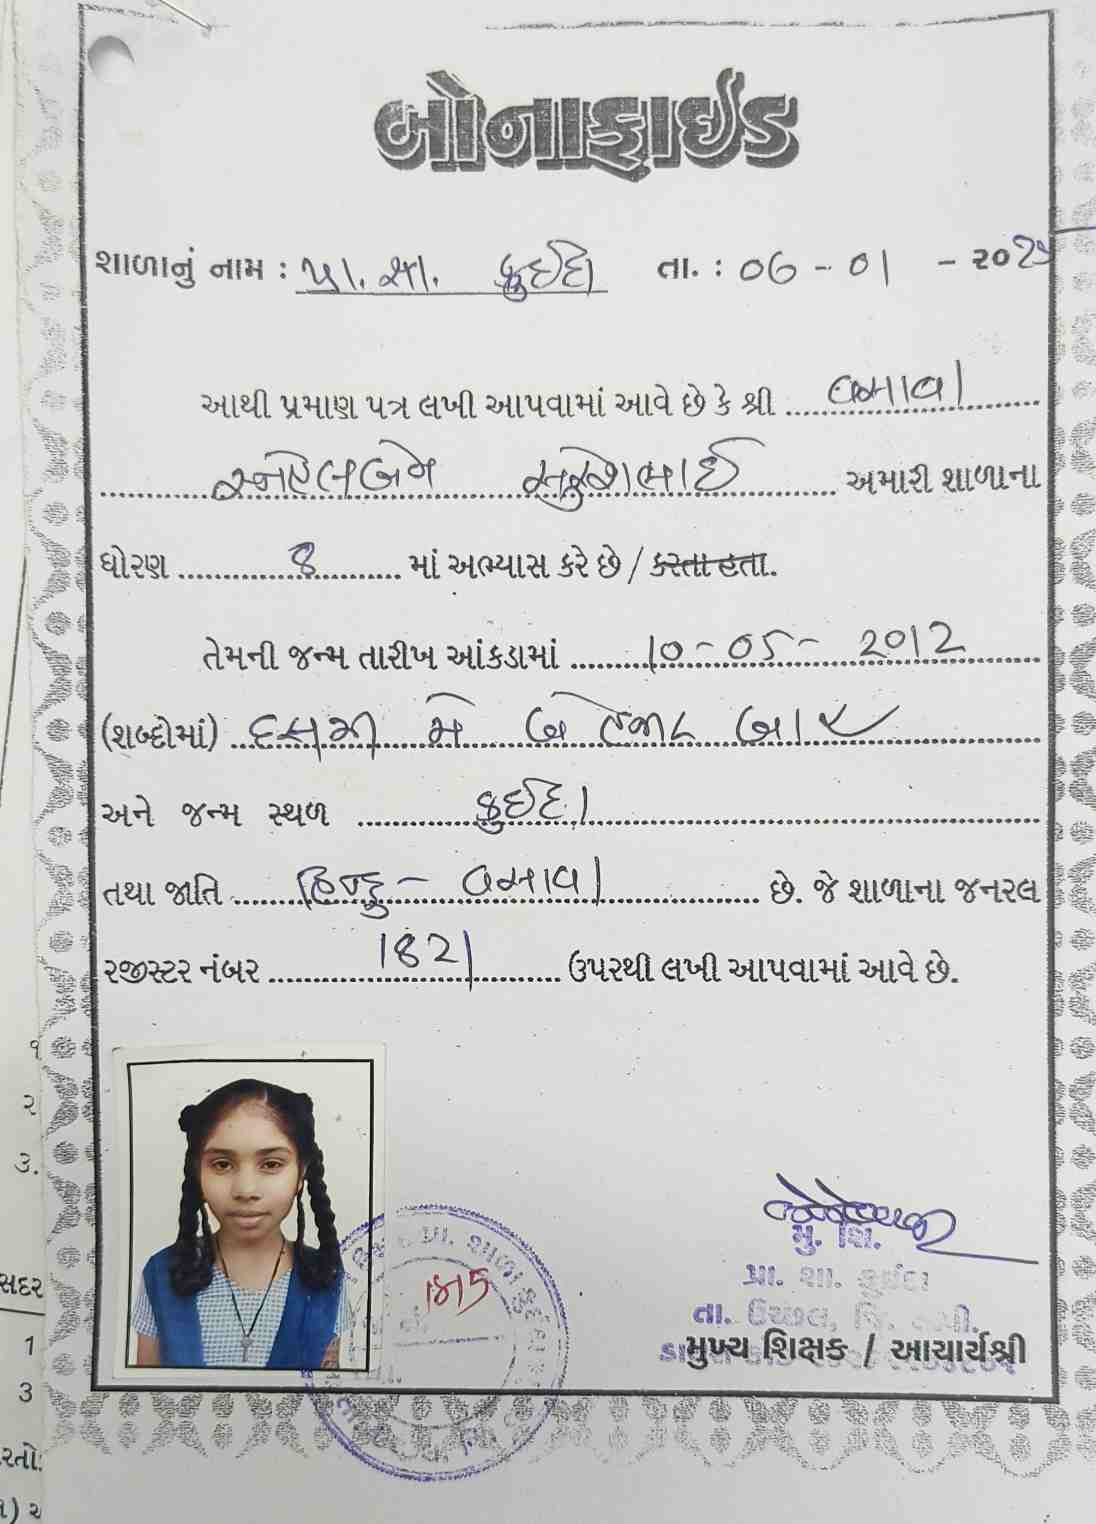 બોનાફાઈડ
શાળાનું નામ : પ્રા. શા. કુઈદા તા. : ૦૭ - ૦૧ - ૨૦૨૫
આથી પ્રમાણ પત્ર લખી આપવામાં આવે છે કે શ્રી વસાવા
સ્નેહલબેન સુરેશભાઈ અમારી શાળાના
ધોરણ 8 માં અભ્યાસ કરે છે / કરતા હતા.
તેમની જન્મ તારીખ આંકડામાં 10 - 05 - 2012
(શબ્દોમાં) દસમી મે બે હજાર બાર
અને જન્મ સ્થળ કુઈદા
તથા જાતિ હિન્દુ - વસાવા છે. જે શાળાના જનરલ
રજીસ્ટર નંબર 1821 ઉપરથી લખી આપવામાં આવે છે.
૧
૨
૩.
મુ. શિ.
પ્રા. શા. કુઇદા
તા. ઉચ્છલ, જિ. તાપી.
મુખ્ય શિક્ષક / આચાર્યશ્રી
પ્રા. શાળા કુઈદા
સદર
1
3